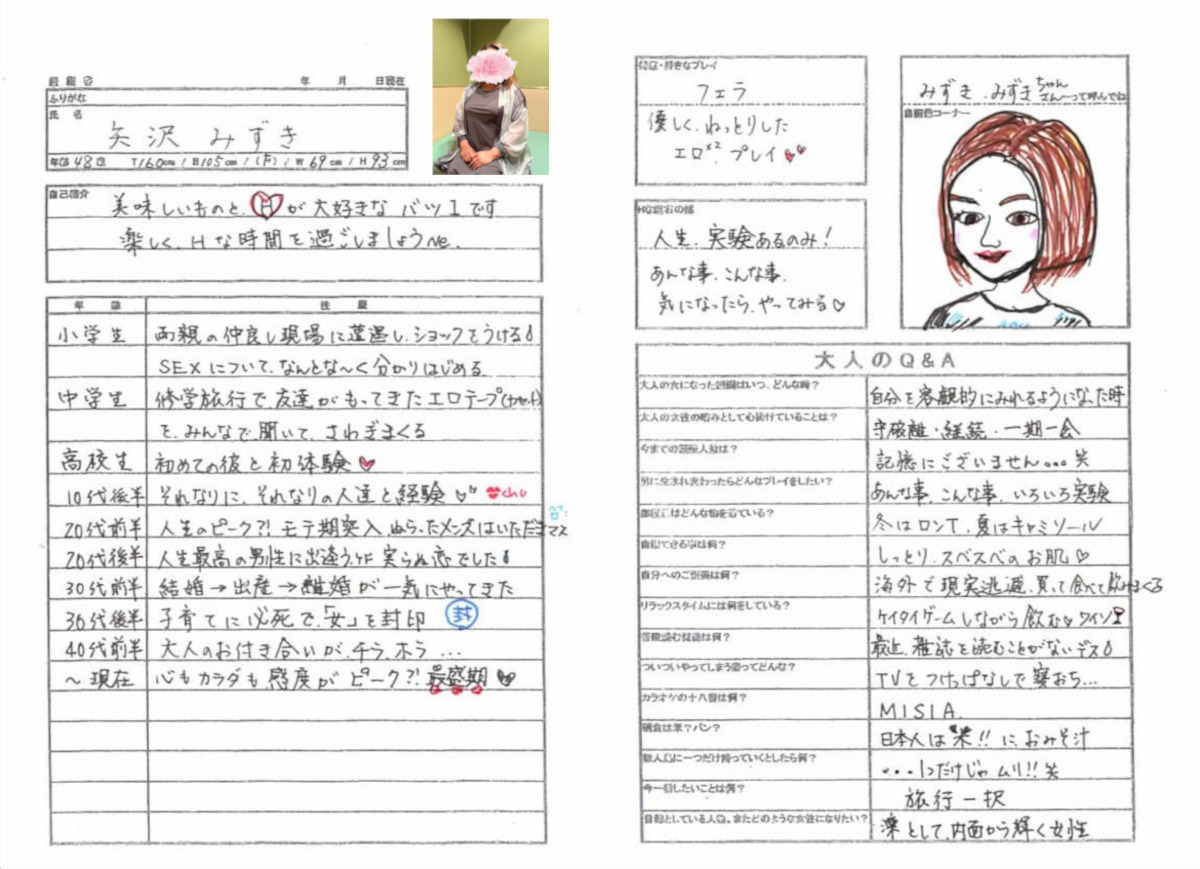 経歴書 年 月 日現在
ふりがな
氏名
矢沢 みずき
年齢48歳 T160cm / B105cm / (F) / W69cm / H93cm
自己紹介
美味しいものと、Hが大好きなバツ1です
楽しく、Hな時間を過ごしましょうNe.
年齢 性歴
小学生 両親の仲良し現場に遭遇し、ショックをうける
SEXについて、なんとな〜く分かりはじめる
中学生 修学旅行で、友達がもってきたエロテープ(カセット)
を、みんなで聞いて、さわぎまくる
高校生 初めての彼と初体験
10代後半 それなりに、それなりの人達と経験 chu
20代前半 人生のピーク?! モテ期突入、ぬらったメンズはいただきマス
20代後半 人生最高の男性に出逢うが、実らぬ恋でした
30代前半 結婚→出産→離婚が一気にやってきた
30代後半 子育てに必死で、「女」を封印 封
40代前半 大人のお付き合いが、チラ、ホラ…
〜現在 心もカラダも感度がピーク?! 最盛期
得意・好きなプレイ
フェラ
優しく、ねっとりした
エロ×2 プレイ
Hな座右の銘
人生、実験あるのみ!
あんな事、こんな事、
気になったら、やってみる
みずき、みずきちゃん
さん〜って呼んでね
自画像コーナー
大人のQ&A
大人の女になった瞬間はいつ、どんな時?
自分を客観的にみれるようになった時
大人の女性の嗜みとして心掛けていることは?
守破離・継続・一期一会
今までの経験人数は?
記憶にございません…笑
男に生まれ変わったらどんなプレイをしたい?
あんな事、こんな事、いろいろ実験
部屋ではどんな物を着ている?
冬はロンT、夏はキャミソール
自慢できる事は何?
しっとり、スベスベのお肌
自分へのご褒美は何?
海外で現実逃避、買って食べて飲みまくる
リラックスタイムには何をしている?
ケイタイゲームしながら飲む ワイン
普段読む雑誌は何?
最近、雑誌を読むことがないデス
ついついやってしまう癖ってどんな?
TVをつけっぱなしで寝おち…
カラオケの十八番は何?
MISIA
朝食は米?パン?
日本人は"米"!! に、おみそ汁
無人島に一つだけ持っていくとしたら何?
…1つだけじゃムリ!!笑
今一番したいことは何?
旅行一択
目標としている人は。またどのような女性になりたい?
凛として、内面から輝く女性